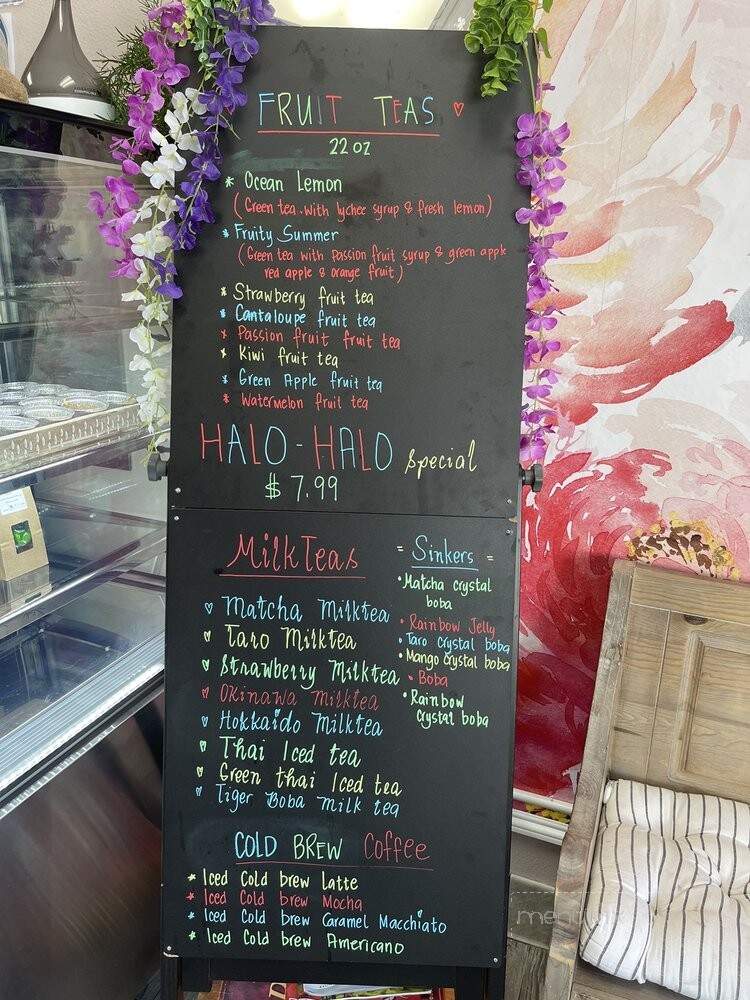 FRUIT TEAS ♡
22 oz
* Ocean Lemon
(Green tea with lychee syrup & fresh lemon)
* Fruity Summer
(Green tea with passion fruit syrup & green apple
red apple & orange fruit)
* Strawberry fruit tea
* Cantaloupe fruit tea
* Passion fruit fruit tea
* Kiwi fruit tea
* Green Apple fruit tea
* Watermelon fruit tea
HALO-HALO special
$ 7.99
MilkTeas
♡ Matcha Milktea
♡ Taro Milktea
♡ Strawberry Milktea
♡ Okinawa Milktea
♡ Hokkaido Milktea
♡ Thai Iced tea
♡ Green thai Iced tea
♡ Tiger Boba milk tea
= Sinkers =
• Matcha crystal
boba
• Rainbow Jelly
• Taro Crystal boba
• Mango crystal boba
• Boba
• Rainbow
Crystal boba
COLD BREW Coffee
* Iced Cold brew Latte
* Iced Cold brew Mocha
* Iced Cold brew Caramel Macchiato
* Iced Cold brew Americano